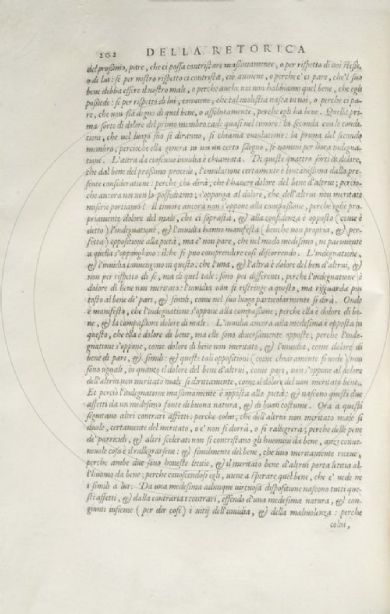 202 DELLA RETORICA
del prossimo, pare, che ci possa contristare o assolutamente, o per rispetto di noi stessi,
o di lui: se per nostro rispetto ci contrista, ciò avviene, o perche e' ci pare, che'l suo
bene debba essere il nostro male, o perche anche noi non habbiamo quel bene, che egli
possiede: se per rispetto di lui, conviene, che tal molestia nasca in noi, o perche ci pa-
re, che non sia degno di quel bene, o assolutamente, perche egli ha bene. Quella pri-
ma sorte di dolore del primo membro cade quasi nel timore: la seconda con le condi-
tioni, che nel luogo suo si diranno, si chiama emulatione: la prima del secondo
membro, percioche ella genera in un certo sdegno, si nomina per loro indegna-
tione. L'altra da ciascuno invidia è chiamata. Di queste quattro sorti di dolore,
che dal bene del prossimo procede, l'emulatione certamente è lontanissima dalla pre-
sente consideratione: perche chi dirà, che l'havere dolore del bene d'altrui; percio-
che ancora noi non lo possediamo, s'opponga al dolore, che dell'altrui non meritate
miserie portiamo? Il timore ancora non s'oppone alla compassione, perche egli è pro-
priamente dolore del male, che ci soprastà, &) alla confidenza è opposto (come è
detto) l'indegnatione, &) l'invidia hanno manifesta (benche non propria, &) per-
fetta) oppositione alla pietà, ma e' non pare, che nel modo medesimo, ne parimente
a quella s'oppongano: il che si può comprendere così discorrendo. L'indegnatione,
&) l'invidia convengono in questo: che l'una, &) l'altra è dolore del ben d'altrui, &)
non per rispetto di sé, ma di quel tale: sono poi differenti, perche l'indegnatione è
dolore di bene non meritato: l'invidia non si ristringe a questo, ma risguarda piu
tosto al bene de' pari, &) simili, come nel suo luogo particolarmente si dirà. Onde
è manifesto, che l'indegnatione s'oppone alla compassione; perche ella è dolore di be-
ne, &) la compassione dolore di male. L'invidia ancora alla medesima è opposta in
questo, che ella è dolore di bene, ma elle sono diversamente opposte; perche l'inde-
gnatione s'oppone, come dolore di bene non meritato, &) l'invidia, come dolore di
bene di pare, &) simili: queste tali oppositioni (come chiaramente si vede) non
sono uguali, in quanto il dolore del bene d'altrui, come pari, non s'oppone al dolore
dell'altrui non meritato male sì drittamente, come il dolore del non meritato bene.
Et perciò l'indegnatione massimamente è opposta alla pietà: &) nascono questi due
affetti da un medesimo fonte di buona natura, &) di buoni costumi. Ora a questi
seguitano altri contrari affetti; perche colui, che dell'altrui non meritato male si
duole, certamente del meritato, o e' non si dorrà, o si rallegrerà; perche delle pene
de' parricidi, &) altri scelerati non si contristano gli huomini da bene, anzi conve-
nevole cosa è il rallegrarsene: &) similmente del bene, che uno meritamente riceve,
perche ambe due sono honeste letitie, &) il meritato bene d'altrui porta letitia al-
l'huomo da bene; perche conoscendosi egli, viene a sperare quel bene, che e' vede ne
i simili a lui: Da una medesima adunque virtuosa dispositione nascono tutti que-
sti affetti, &) dalla contraria i contrari, essendo d'una medesima natura, &) con-
giunti insieme (per dir così) i vitij dell'invidia, &) della malivolenza: perche
colui,